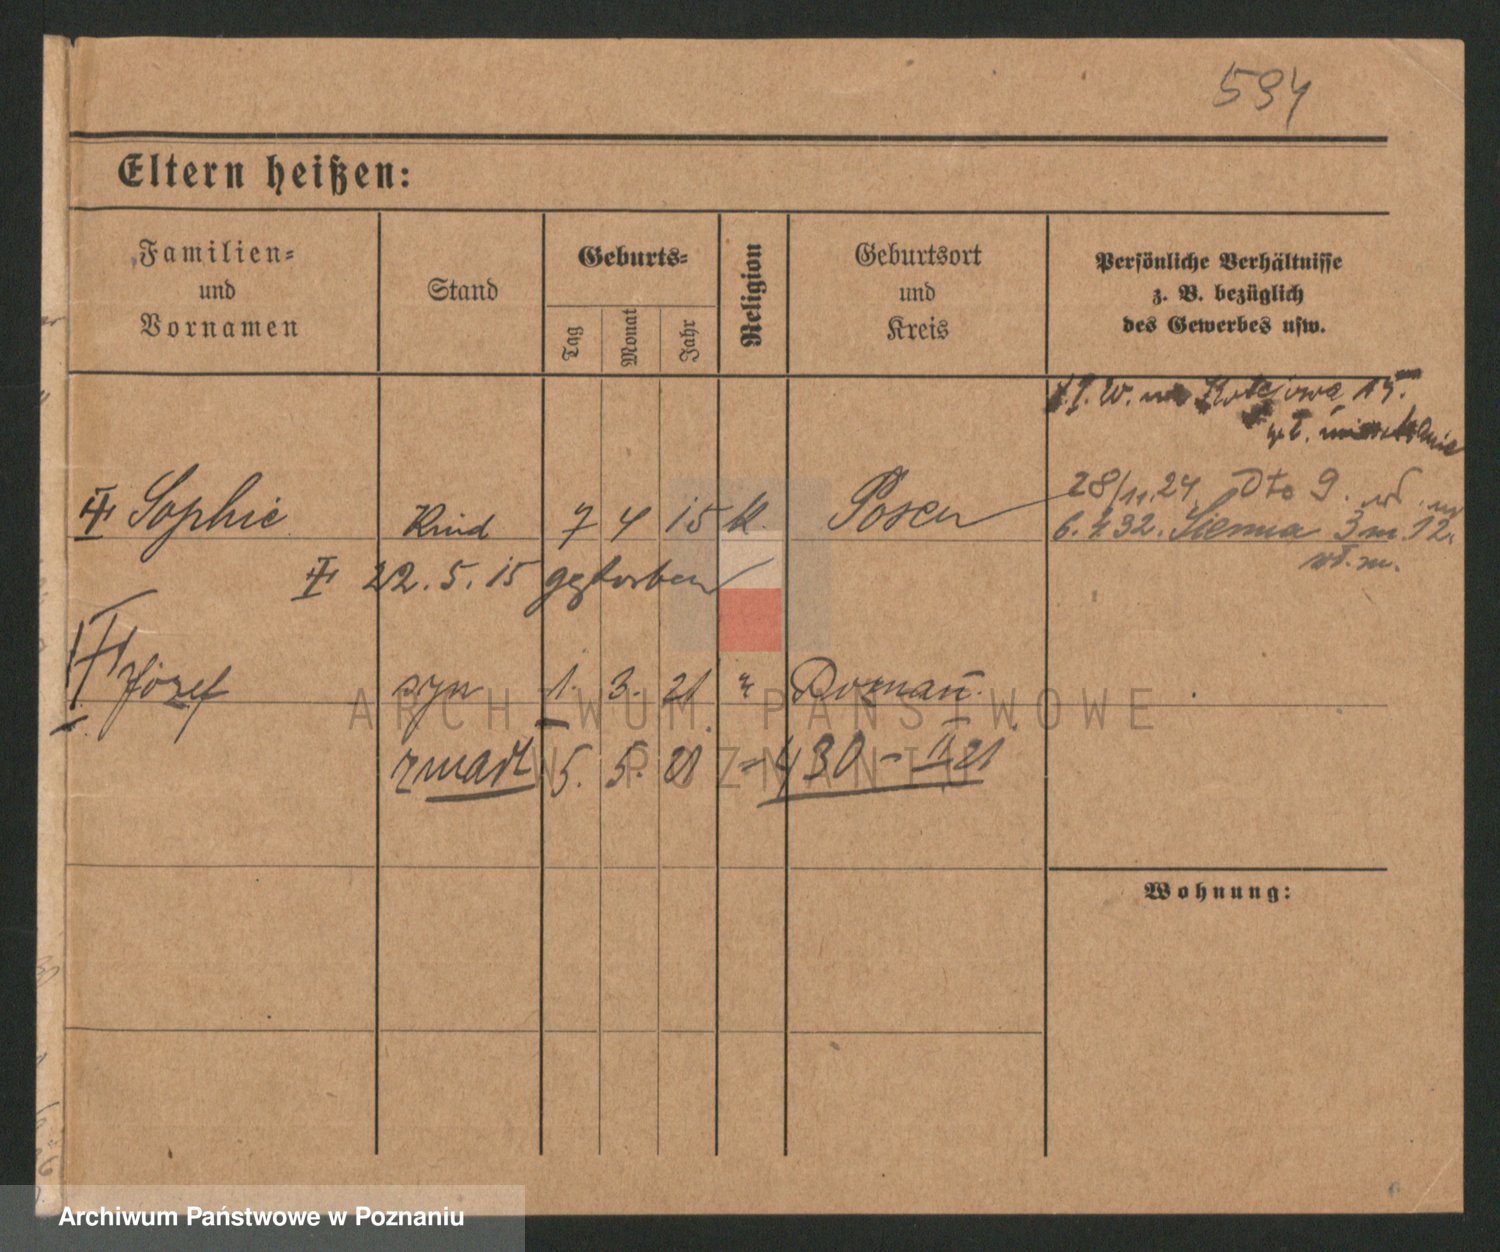 594
Eltern heißen:
Familien-
und
Vornamen
Stand
Geburts-
Tag
Monat
Jahr
Religion
Geburtsort
und
Kreis
Persönliche Verhältnisse
z. B. bezüglich
des Gewerbes usw.
W. Kolejowa 15.
Sophie Kind 7 4 15 k. Posen
28/11.24 Dto 9.
6. 4. 32. Sienna 3 m. 12.
22.5.15 gestorben
Józef syn 1. 3. 21 " Poznań.
zmarł 5. 5. 21 = 430 - II 21
Wohnung:
ARCHIWUM PAŃSTWOWE
W POZNANIU
Archiwum Państwowe w Poznaniu